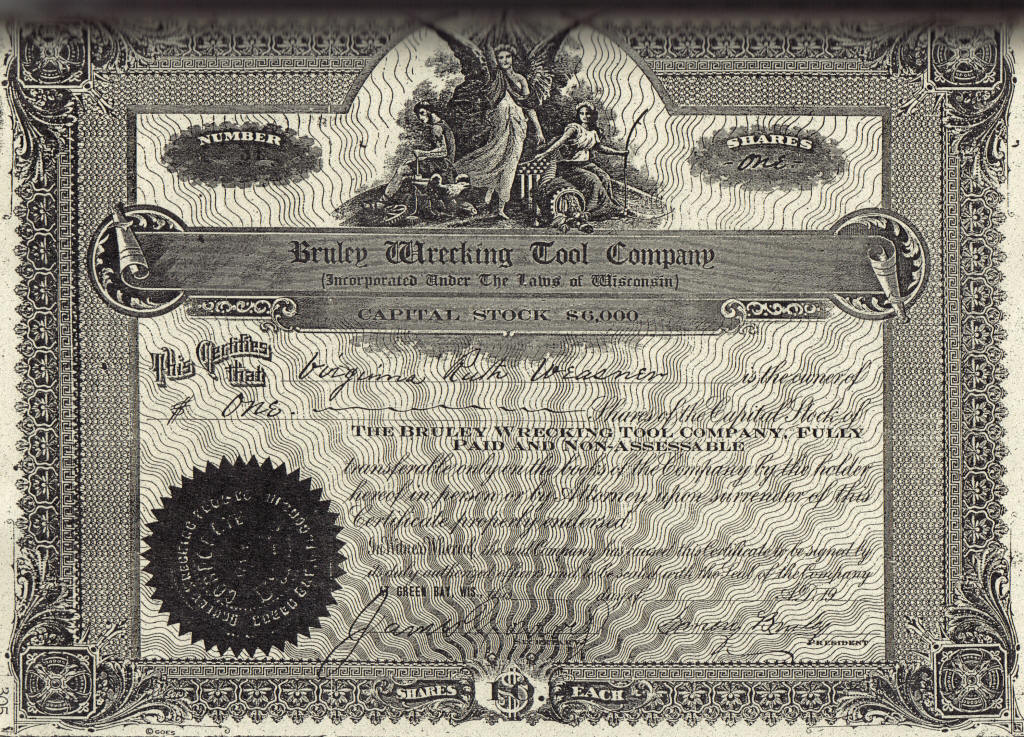 NUMBER
SHARES
ONE
Bruley Wrecking Tool Company
(Incorporated Under The Laws of Wisconsin)
CAPITAL STOCK $6,000
This Certifies that Virginia Ruth Weasner is the owner of
$ ONE. Shares of the Capital Stock of
THE BRULEY WRECKING TOOL COMPANY, FULLY
PAID AND NON-ASSESSABLE
transferable only on the books of the Company by the holder
hereof in person or by Attorney upon surrender of this
Certificate properly endorsed
In Witness Whereof, the said Company has caused this Certificate to be signed by
its duly authorized officers and to be sealed with the Seal of the Company
AT GREEN BAY, WIS. day of A.D. 19
PRESIDENT
SHARES EACH
©GOES